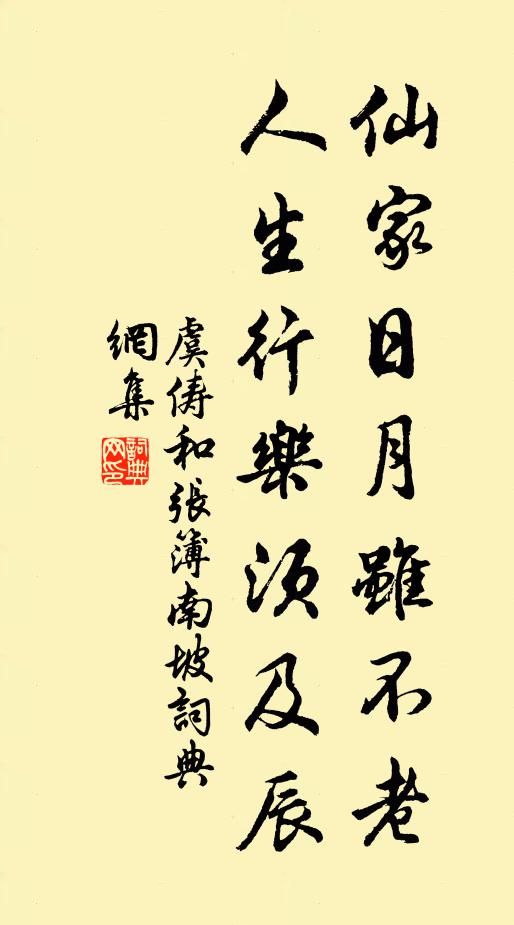 仙家日月雖不老
人生行樂須及辰
虞儔和張簿南坡詞典
網集
詞典
网印